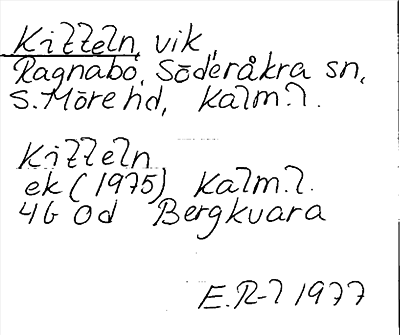 Killeln, vik,
Ragnabo, Söderåkra sn,
S. Möre hd, Kalm. l.
Killeln
ek (1975) Kalm. l.
4G 0d Bergkvara
E.R-l 1977